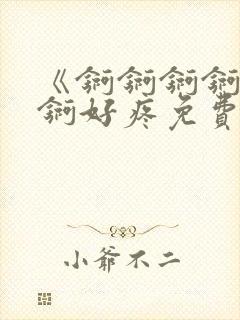 《锕锕锕锕
锕好疼免费
小爷不二